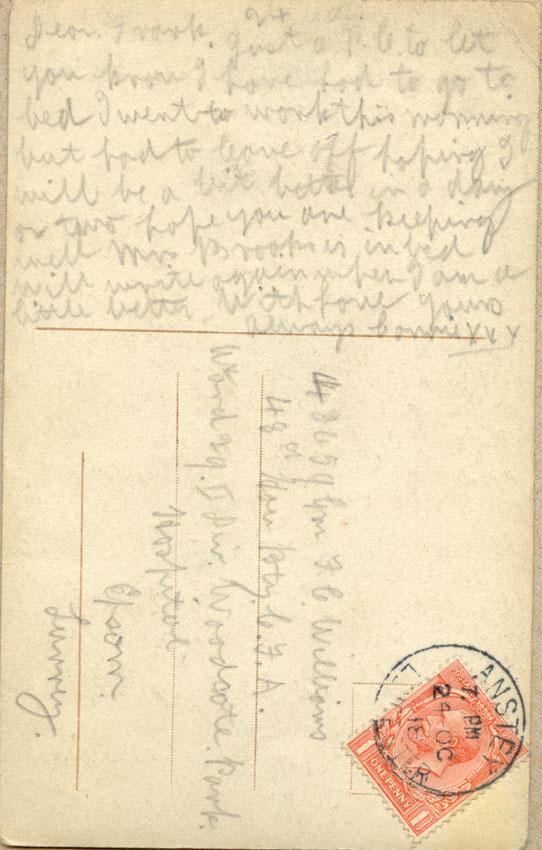 24
Dear Frank. Just a P.C. to let
you know I have had to go to
bed I went to work this morning
but had to leave off hoping I
will be a bit better in a day
or two hope you are keeping
well Mrs Brooks is in bed
will write again when I am a
little better. With love yours
always Connie XXX
43659 Gnr F. C. Williams
43rd How Bty C.F.A.
Ward 29. 5 Div. Woodcote Park.
Hospital
Epsom.
Surrey.
ANSTEY
7. PM
24 OC
16
ONE PENNY
1 1